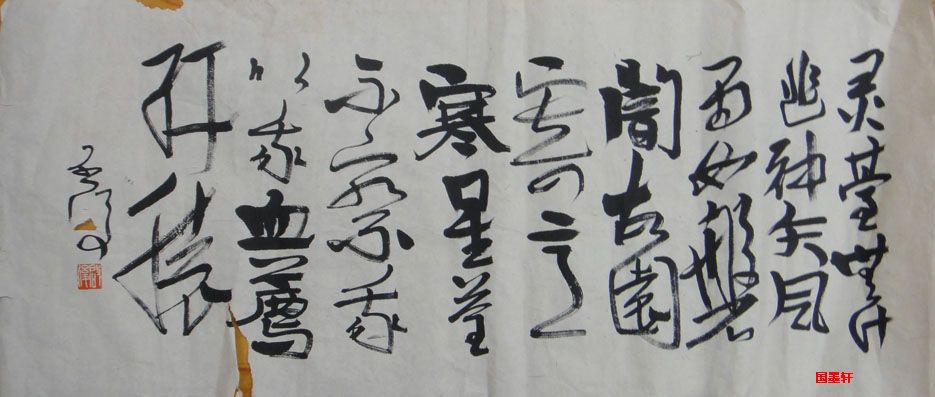 灵臺無计
逃神矢风
雨如磐
闇故園
寄意
寒星荃
不察我
以我血薦
轩辕
国墨轩